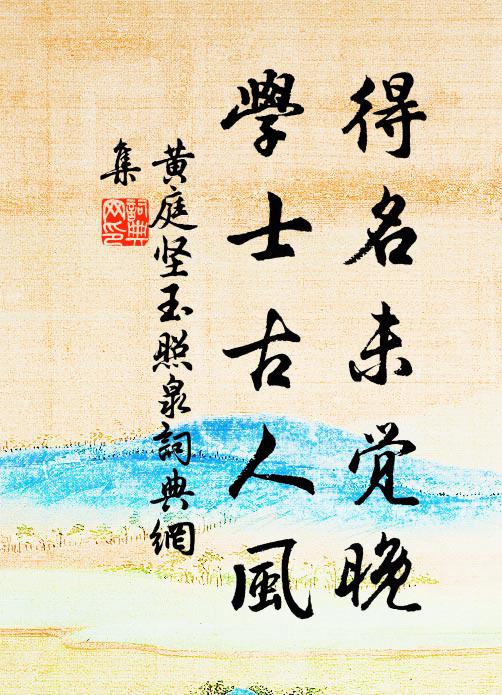 得名未觉晚
學士古人風
黄庭坚玉照泉詞典網
集
詞典網印